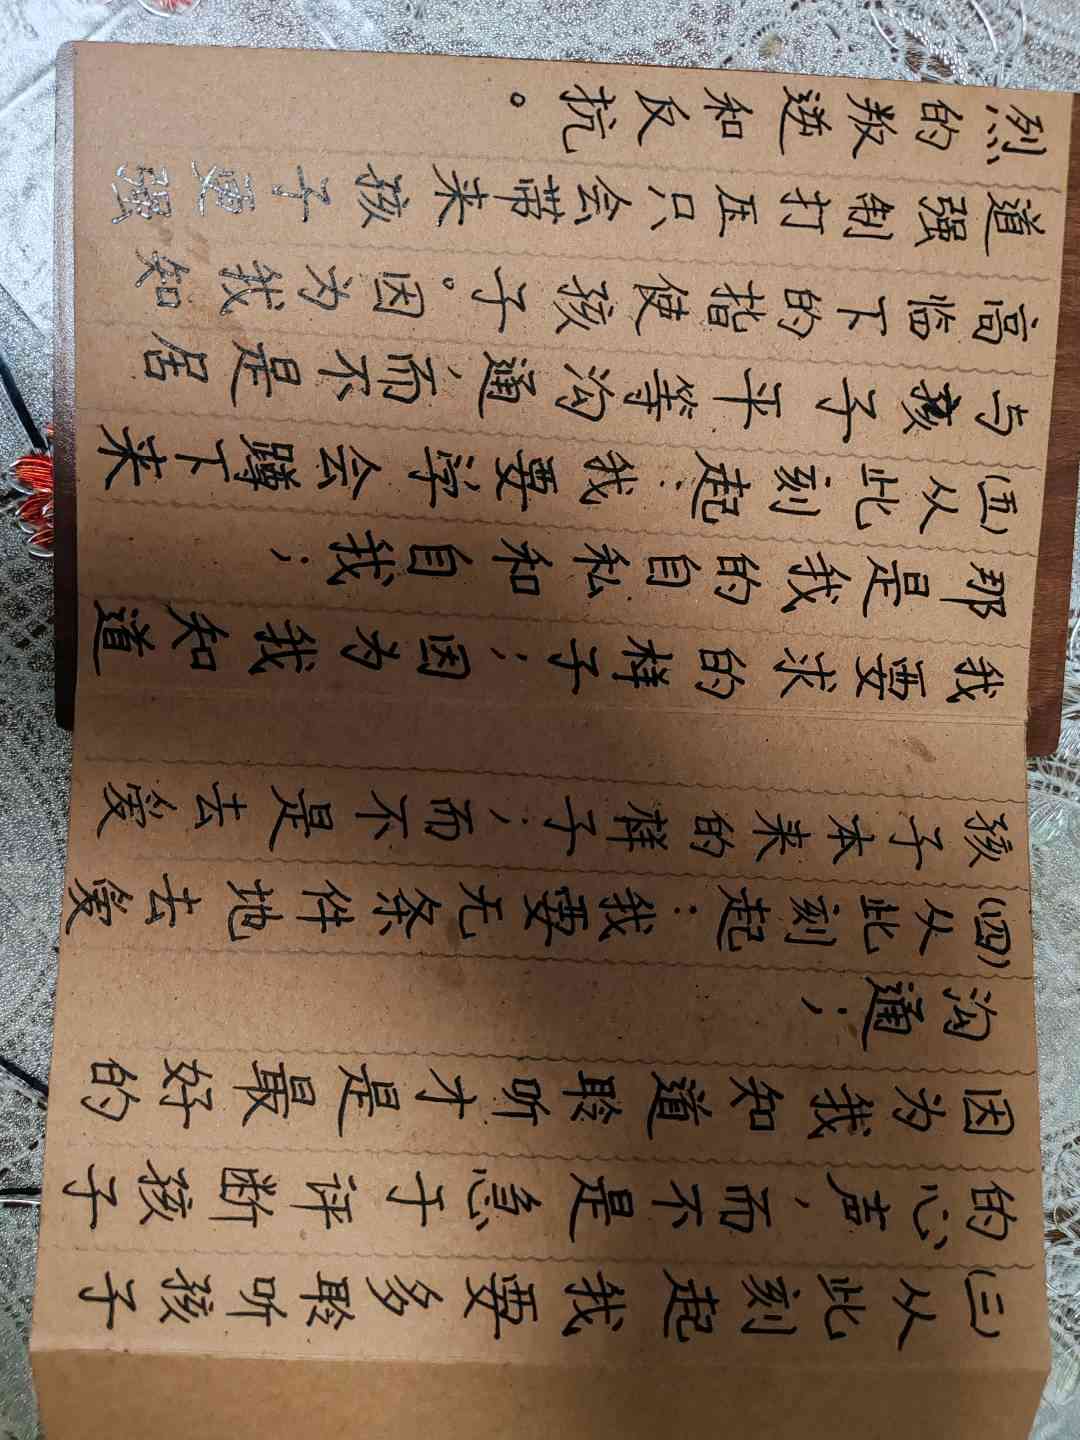 (三)从此刻起我要多聆听孩子
的心声,而不是急于评断孩子
因为我知道聆听才是最好的
沟通;
(四)从此刻起:我要无条件地去爱
孩子本来的样子;而不是去爱
我要求的样子;因为我知道
那是我的自私和自我;
(五)从此刻起:我要学会蹲下来
与孩子平等沟通,而不是居
高临下的指使孩子。因为我知
道强制打压只会带来孩子更强
烈的叛逆和反抗。